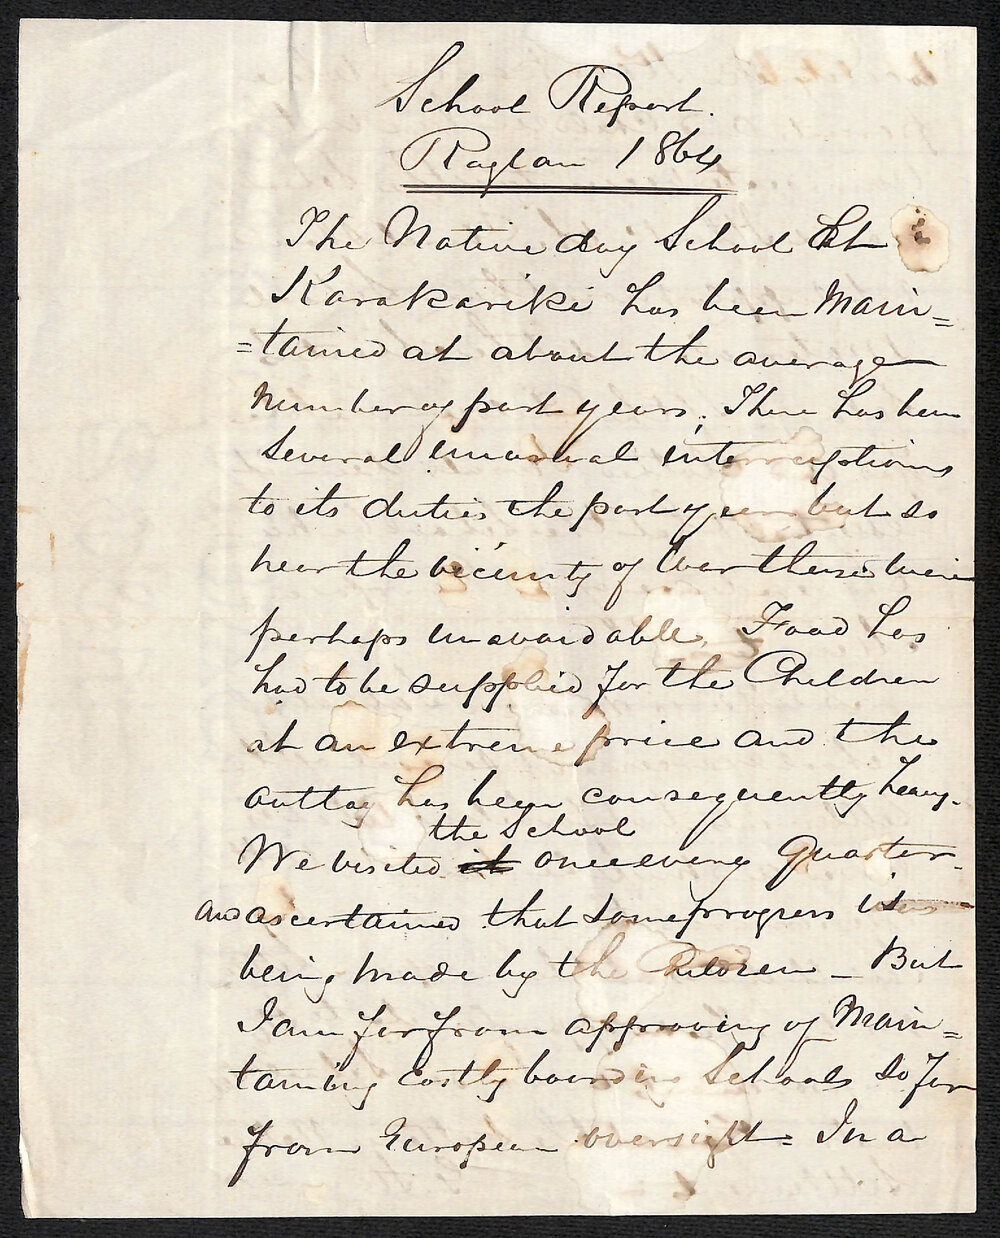 School Report.
Raglan 1864
The Native day School at
Karakariki has been Main=
=tained at about the average
Number of past years. There has been
Several unusual interruptions
to its duties the past year but so
near the vicinity of War these were
perhaps unavoidable. Food has
had to be supplied for the Children
at an extreme price and the
outlay has been consequently heavy.
the School
We visited it once every Quarter
and ascertained that some progress was
being made by the Children – But
I am far from approving of Main=
taining costly boarding Schools so far
from European oversight = In a